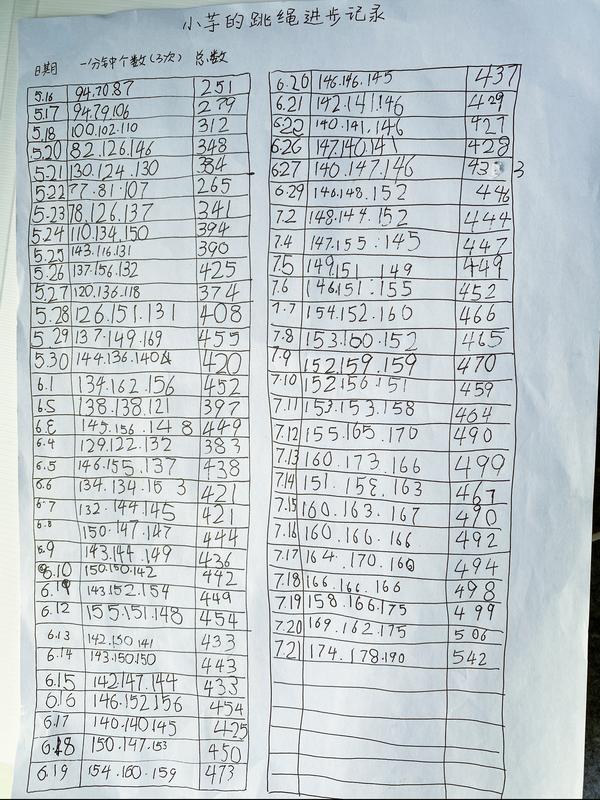 小芋的跳绳进步记录
日期 一分钟个数(3次) 总数
5.16 94.70 87 251
5.17 94.79.106 279
5.18 100.102.110 312
5.20 82.126.146 348
5.21 130.124.130 384
5.22 77.81.107 265
5.23 78.126.137 341
5.24 110.134.150 394
5.25 143.116.131 390
5.26 137.156.132 425
5.27 120.136.118 374
5.28 126.151.131 408
5.29 137.149.169 455
5.30 144.136.140 420
6.1 134.162.156 452
6.5 138.138.121 397
145.156.148 449
6.4 129.122.132 383
6.5 146.155.137 438
6.6 134.134.153 421
6.7 132.144.145 421
6.8 150.147.147 444
6.9 143.144.149 436
6.10 150.150.142 442
6.11 143.152.154 449
6.12 155.151.148 454
6.13 142.150 141 433
6.14 143.150.150 443
6.15 142.147.144 433
6.16 146.152.156 454
6.17 140.140.145 425
6.18 150.147.153 450
6.19 154.160.159 473
6.20 146.146.145 437
6.21 142.141.146 429
6.22 140.141.146 427
6.26 147.140.141 428
6.27 140.147.146 433
6.29 146.148.152 446
7.2 148.144.152 444
7.4 147.155.145 447
7.5 149.151 149 449
7.6 146.151.155 452
7.7 154.152.160 466
7.8 153.160.152 465
7.9 152.159.159 470
7.10 152.156.151 459
7.11 153.153.158 464
7.12 155.165.170 490
7.13 160.173.166 499
7.14 151.153.163 467
7.15 160.163.167 490
7.16 160.166.166 492
7.17 164.170.160 494
7.18 166.166.166 498
7.19 158.166.175 499
7.20 169.162.175 506
7.21 174.178.190 542